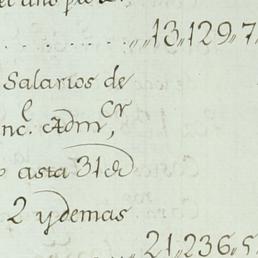 ........ „ 13,129,,7
Salarios de
nc.l Admr,cr
asta 31 d
2 ydemas
21,236,5